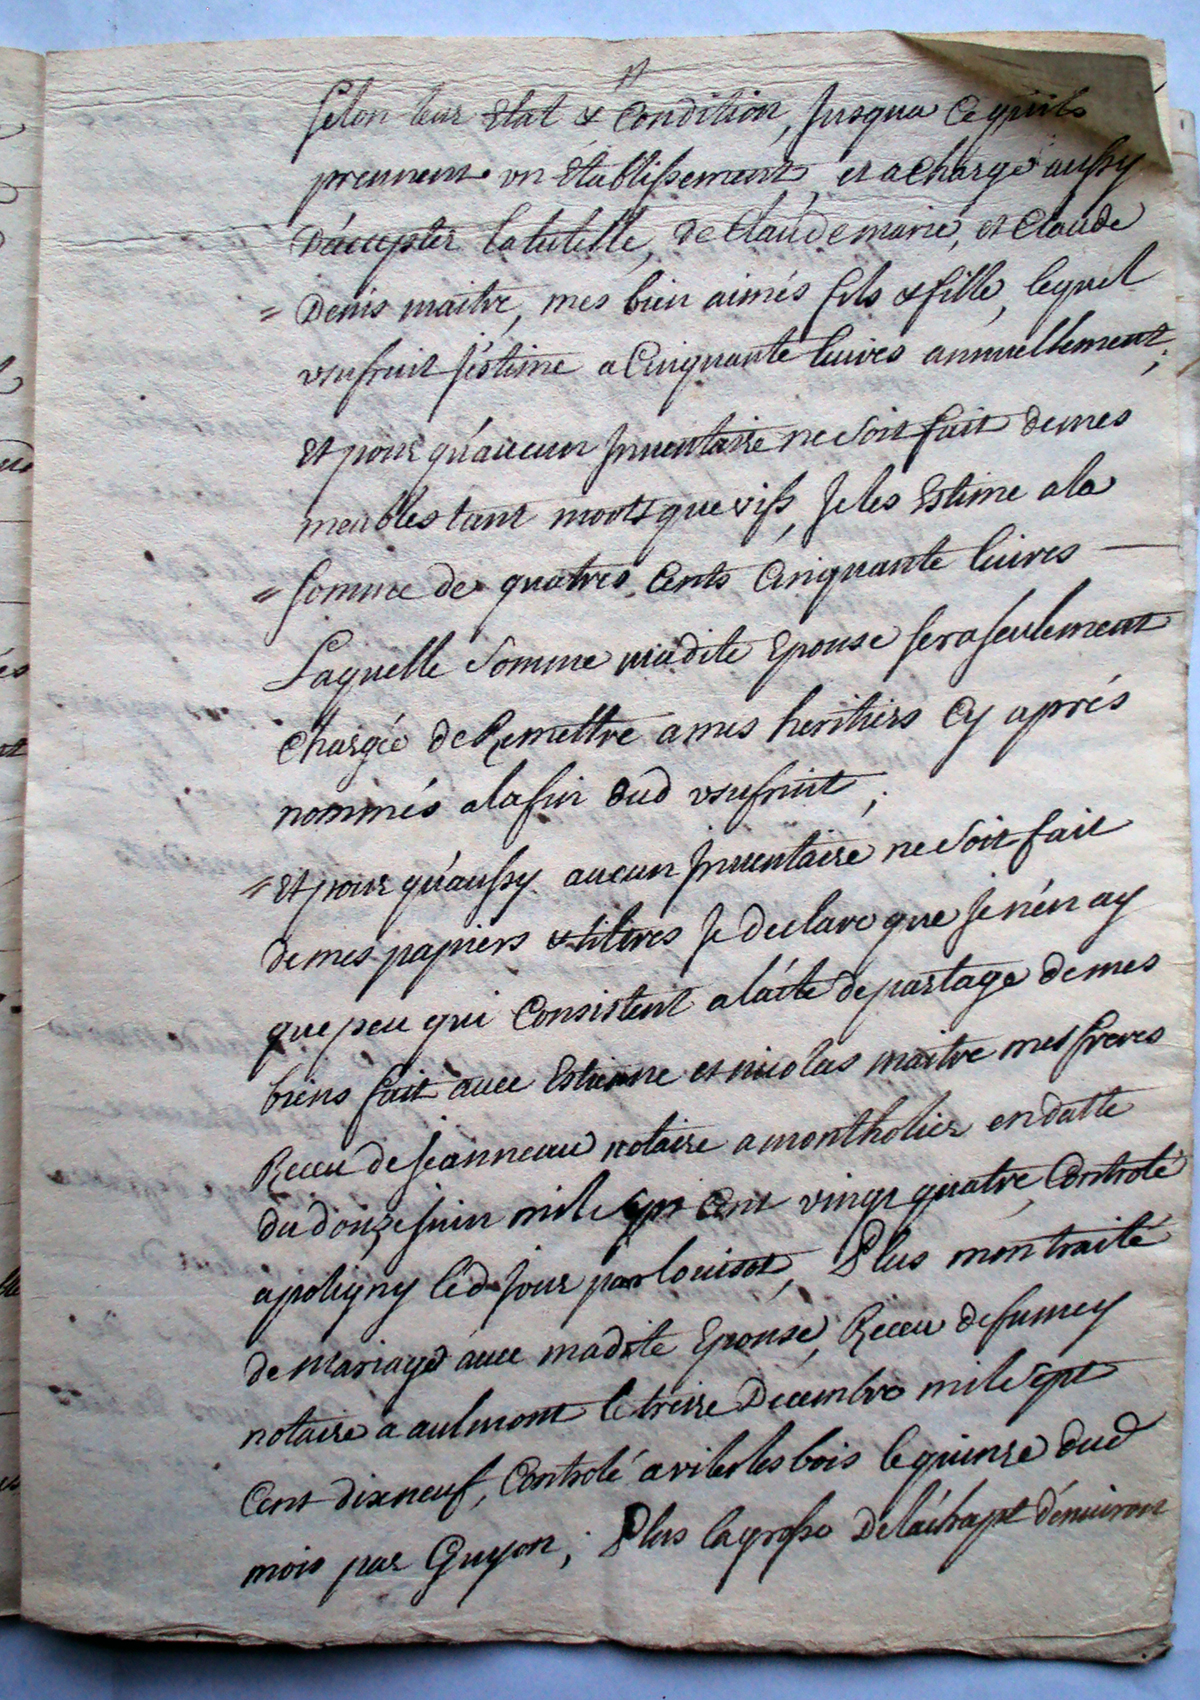 selon leur Etat & Condition, Jusqua Ce quils
prennent vn Etablissement, et a Charge aussy
D'accepter la tutelle, de Claude marie, et Claude
= Denis maitre, mes bien aimés fils & fille, lequel
vsufruit J'éstime a Cinquante liures annuellement;
Et pour qu'aucun Jnuentaire ne soit fait de mes
meubles tant morts que vifs, Je les Estime a la
= somme de quatres Cents Cinquante liures —
Laquelle somme madite Epouse sera seulement
Chargée de Remettre a mes heritiers Cy aprés
nommés a la fin dud vsufruit;
= Et pour qu'aussy aucun Jnuentaire ne soit fait
de mes papiers & titres Je declare que Je n'én ay
que peu qui Consistent a l'acte de partage de mes
biens fait auec Estienne et nicolas maitre mes freres
Receu de Jeanneau notaire a montholier en datte
du douze Juin mil sept Cent vingt quatre, Controlé
a poligny led Jour par louisot, Plus mon traité
de Mariage auec madite Epouse, Receu de fumey
notaire a aulmont le treize Decembre mil sept
Cent dixneuf, Controlé a villerslesbois le quinze dud
mois par Guyon; Plus la grosse De l'áchapt d'énuiron